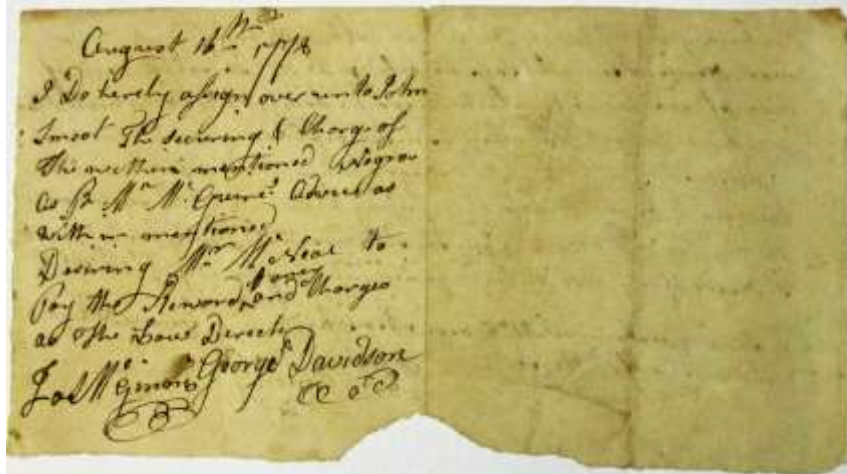 August 16th 1778
I Do hereby assign over unto John
Smoot The securing & Charge of
the within mentioned Negroe
as Pr Mr Mc Advice as
within mentioned
Desiring Mr McNeal to
Pay the Reward and Charges
as The Law Directs
George Davidson